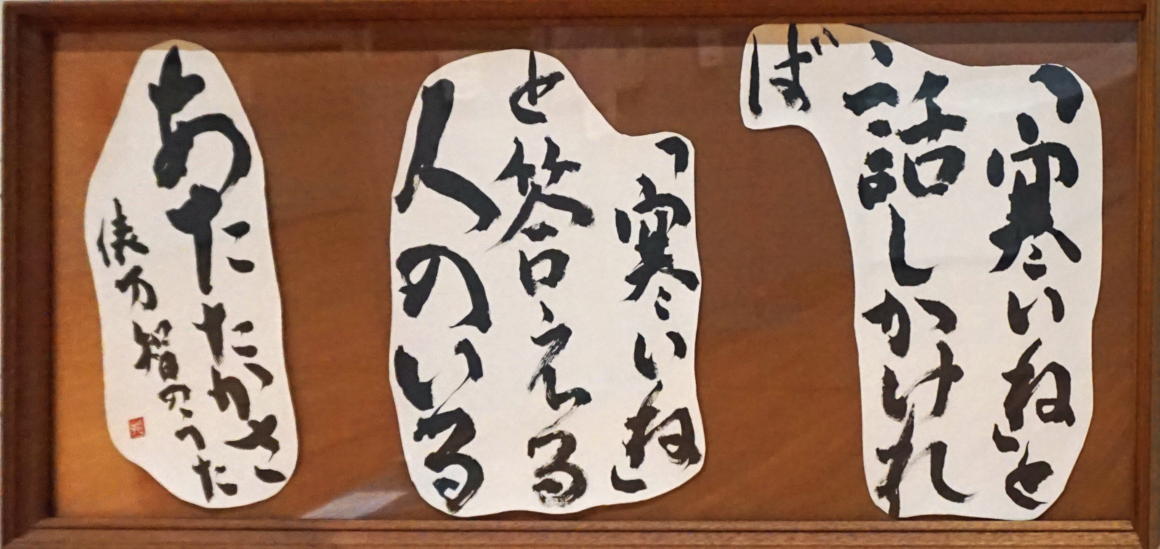 「寒いね」と
話しかけれ
ば
「寒いね」
と答える
人のいる
あたたかさ
俵万智のうた